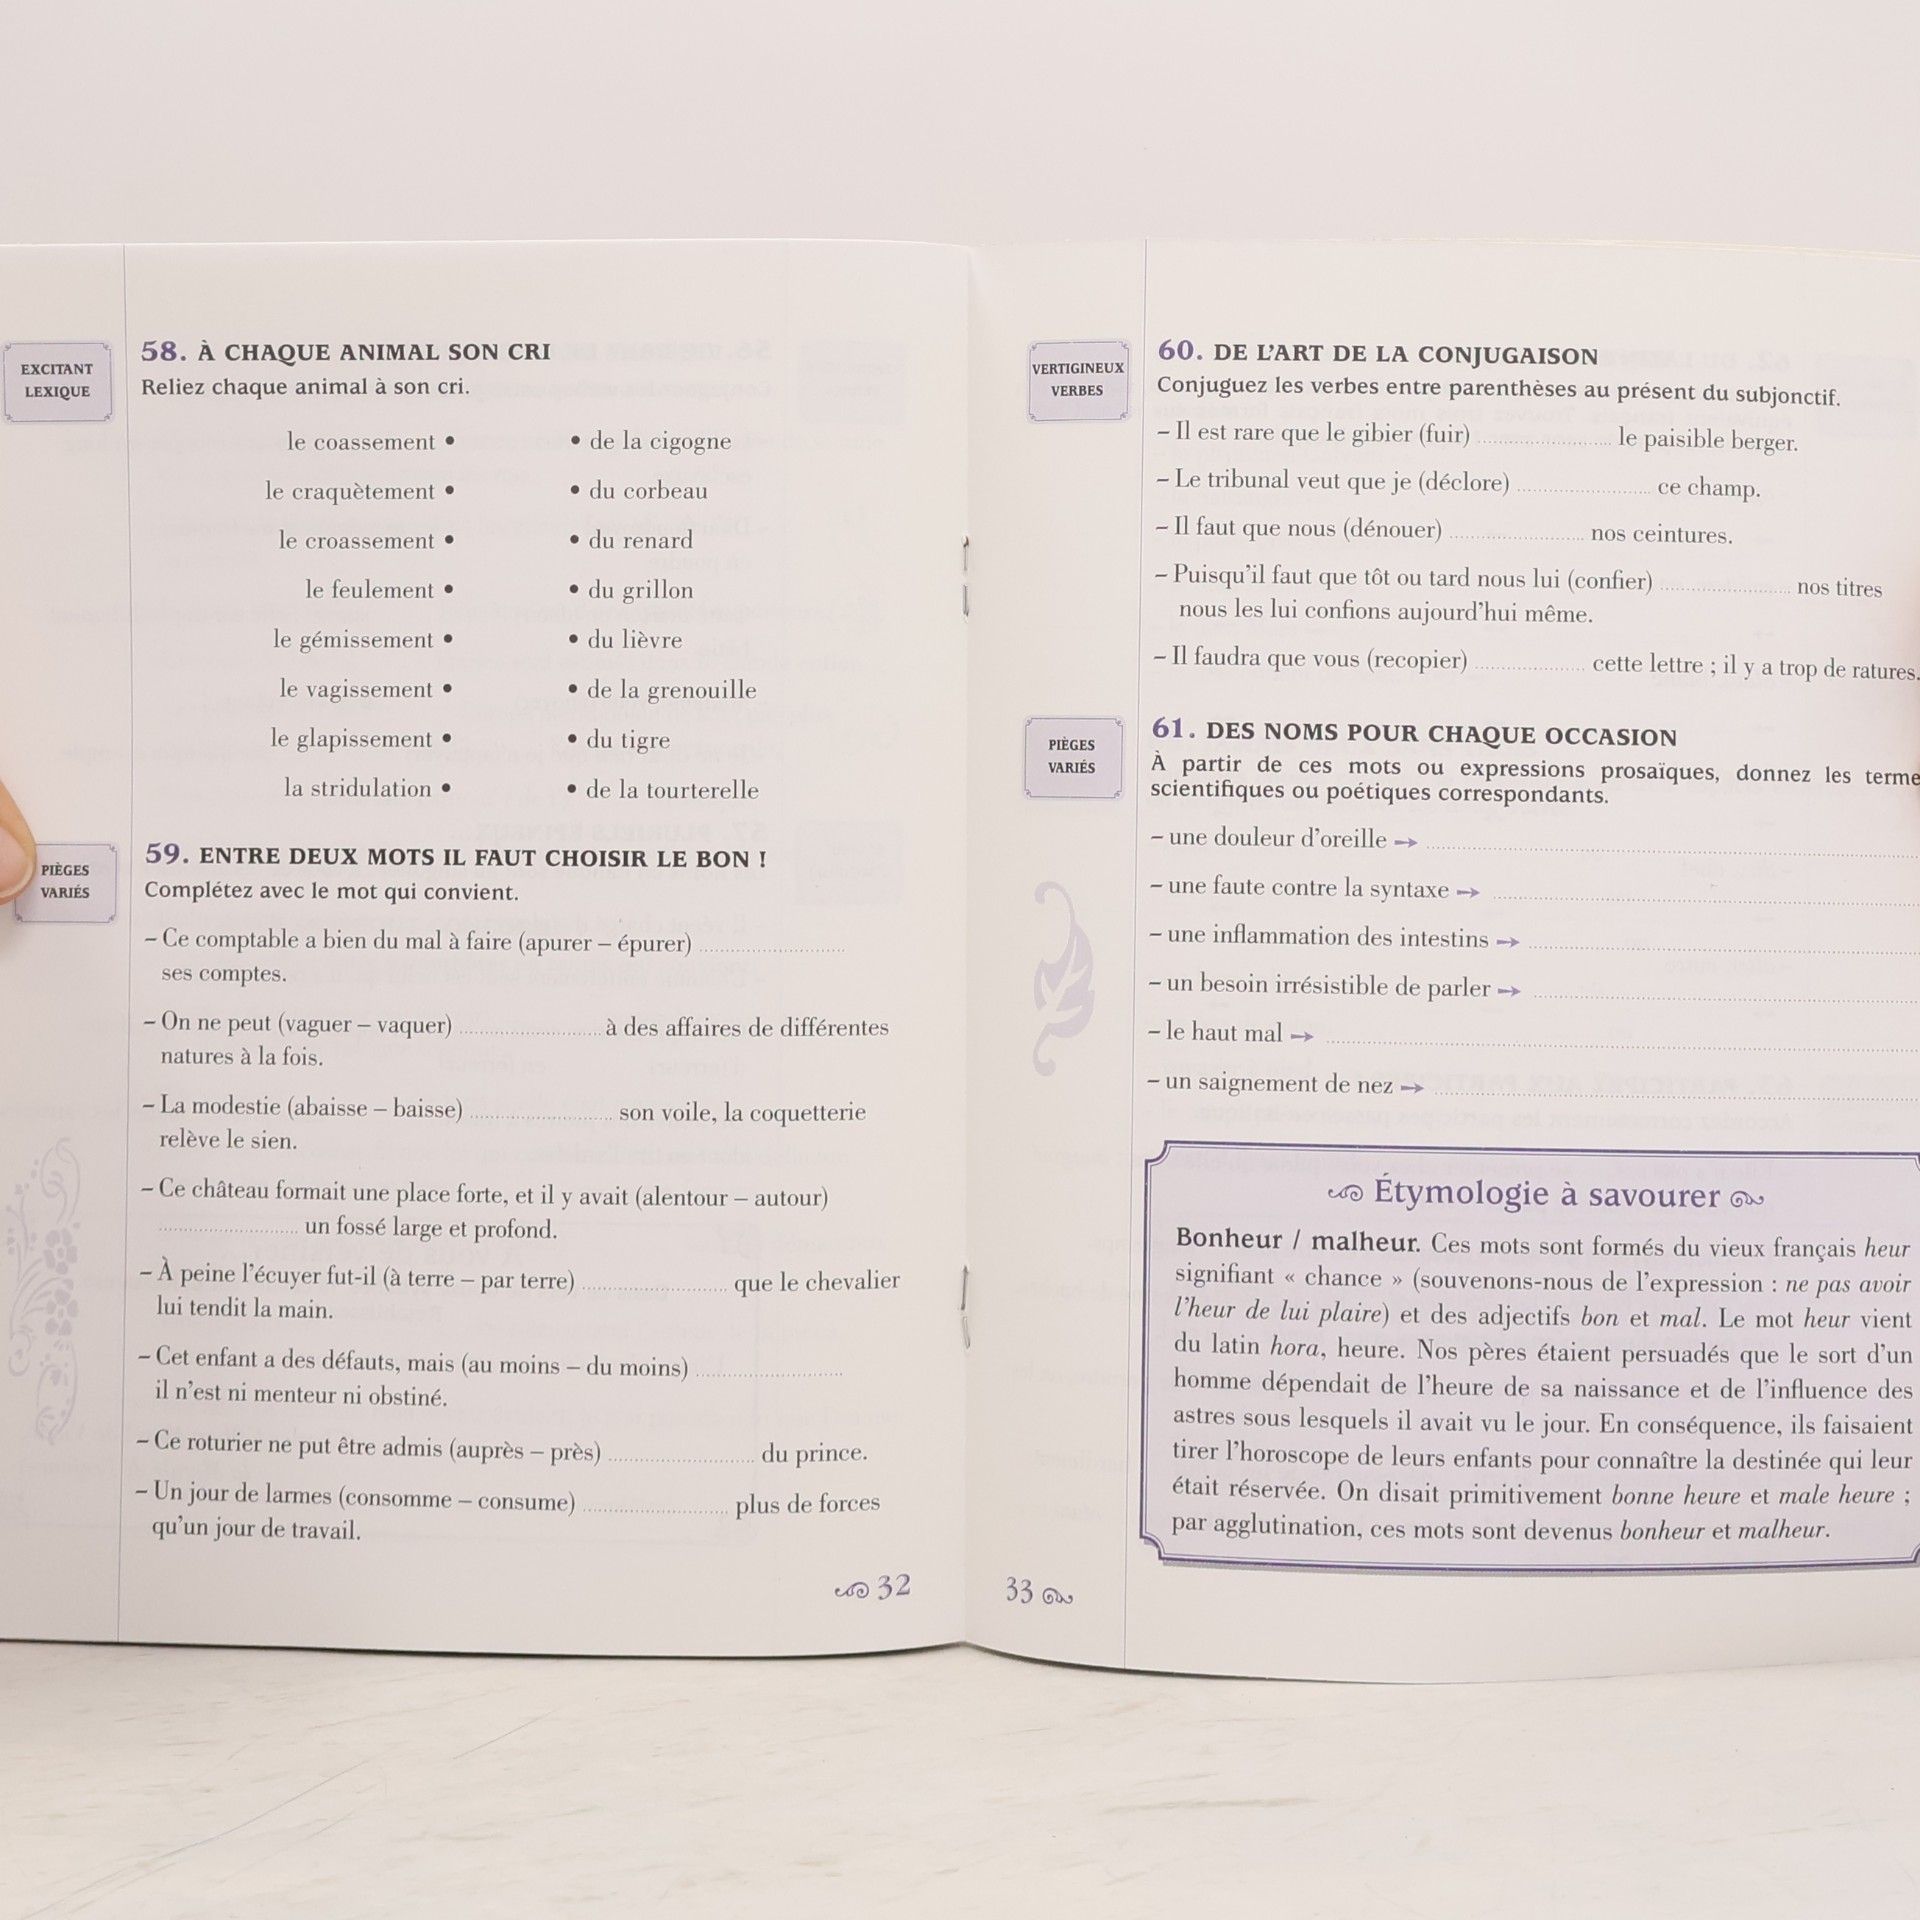 EXCITANT
LEXIQUE
58. À CHAQUE ANIMAL SON CRI
Reliez chaque animal à son cri.
le coassement • • de la cigogne
le craquètement • • du corbeau
le croassement • • du renard
le feulement • • du grillon
le gémissement • • du lièvre
le vagissement • • de la grenouille
le glapissement • • du tigre
la stridulation • • de la tourterelle
PIÈGES
VARIÉS
59. ENTRE DEUX MOTS IL FAUT CHOISIR LE BON !
Complétez avec le mot qui convient.
– Ce comptable a bien du mal à faire (apurer – épurer) ........................
ses comptes.
– On ne peut (vaguer – vaquer) ........................ à des affaires de différentes
natures à la fois.
– La modestie (abaisse – baisse) ........................ son voile, la coquetterie
relève le sien.
– Ce château formait une place forte, et il y avait (alentour – autour)
........................ un fossé large et profond.
– À peine l'écuyer fut-il (à terre – par terre) ........................ que le chevalier
lui tendit la main.
– Cet enfant a des défauts, mais (au moins – du moins) ........................
il n'est ni menteur ni obstiné.
– Ce roturier ne put être admis (auprès – près) ........................ du prince.
– Un jour de larmes (consomme – consume) ........................ plus de forces
qu'un jour de travail.
32
VERTIGINEUX
VERBES
60. DE L'ART DE LA CONJUGAISON
Conjuguez les verbes entre parenthèses au présent du subjonctif.
– Il est rare que le gibier (fuir) ........................ le paisible berger.
– Le tribunal veut que je (déclore) ........................ ce champ.
– Il faut que nous (dénouer) ........................ nos ceintures.
– Puisqu'il faut que tôt ou tard nous lui (confier) ........................ nos titres
nous les lui confions aujourd'hui même.
– Il faudra que vous (recopier) ........................ cette lettre ; il y a trop de ratures.
PIÈGES
VARIÉS
61. DES NOMS POUR CHAQUE OCCASION
À partir de ces mots ou expressions prosaïques, donnez les terme
scientifiques ou poétiques correspondants.
– une douleur d'oreille → ........................
– une faute contre la syntaxe → ........................
– une inflammation des intestins → ........................
– un besoin irrésistible de parler → ........................
– le haut mal → ........................
– un saignement de nez → ........................
Étymologie à savourer
Bonheur / malheur. Ces mots sont formés du vieux français heur
signifiant « chance » (souvenons-nous de l'expression : ne pas avoir
l'heur de lui plaire) et des adjectifs bon et mal. Le mot heur vient
du latin hora, heure. Nos pères étaient persuadés que le sort d'un
homme dépendait de l'heure de sa naissance et de l'influence des
astres sous lesquels il avait vu le jour. En conséquence, ils faisaient
tirer l'horoscope de leurs enfants pour connaître la destinée qui leur
était réservée. On disait primitivement bonne heure et male heure ;
par agglutination, ces mots sont devenus bonheur et malheur.
33